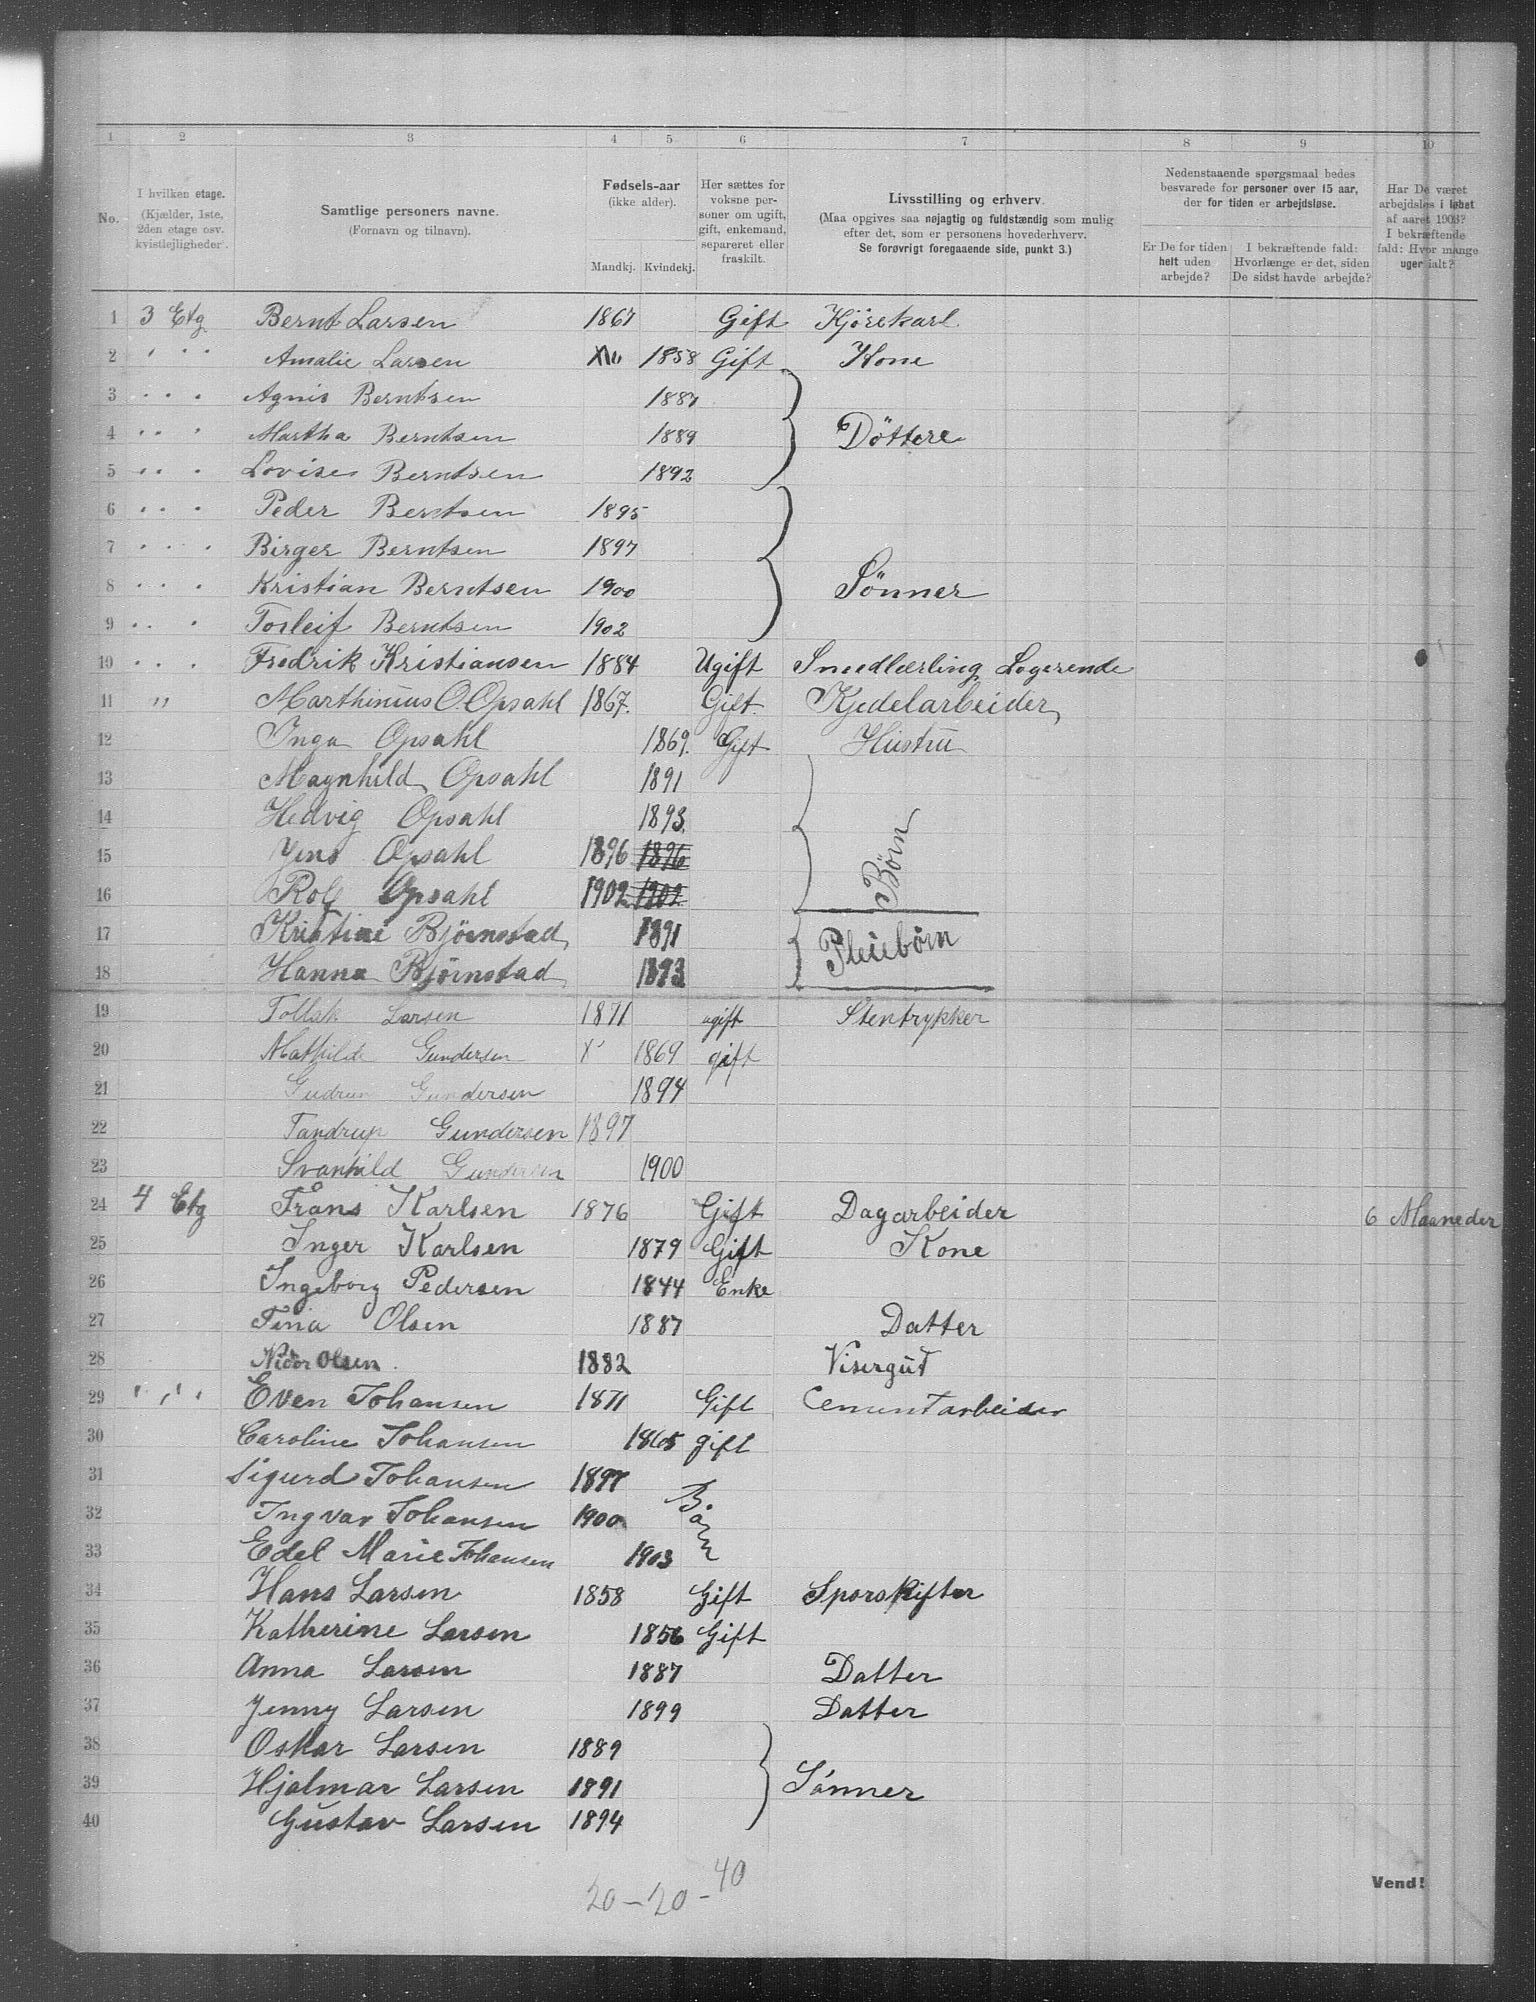 1 2 3 4 5 6 7 8 9 10
No.
I hvilken etage.
(Kjælder, 1ste,
2den etage osv.
kvistlejligheder.
Samtlige personers navne.
(Fornavn og tilnavn).
Fødsels-aar
(ikke alder).
Mandkj. Kvindekj.
Her sættes for
voksne per-
soner om ugift,
gift, enkemand,
separeret eller
fraskilt.
Livsstilling og erhverv.
(Maa opgives saa nøjagtig og fuldstændig som mulig
efter det, som er personens hovederhverv.
Se forøvrigt foregaaende side, punkt 3.)
Nedenstaaende spørgsmaal bedes
besvarede for personer over 15 aar,
der for tiden er arbejdsløse.
Er De for tiden
helt uden
arbejde?
I bekræftende fald:
Hvorlænge er det, siden
De sidst havde arbejde?
Har De været
arbejdsløs i løbet
af aaret 1903?
I bekræftende
fald: Hvor mange
uger ialt?
1 3 Etg Bernt Larsen 1867 Gift Kjørekarl
2 " " " Amalie Larsen 1858 Gift Kone
3 " " " Agnis Berntsen 1887
4 " " " Martha Berntsen 1889 Døttere
5 " " " Lovise Berntsen 1892
6 " " " Peder Berntsen 1895
7 " " " Birger Berntsen 1897
8 " " " Kristian Berntsen 1900 Sønner
9 " " " Torleif Berntsen 1902
10 " " " Fredrik Kristiansen 1884 Ugift Smedlærling Logerende
11 " Marthinius O Opsahl 1867. Gift. Kjedelarbeider
12 Inga Opsahl 1869. Gift Hustru
13 Magnhild Opsahl 1891
14 Hedvig Opsahl 1893
15 Jens Opsahl 1896 1896 Børn
16 Rolf Opsahl 1902 1902
17 Kristine Bjørnstad 1891 Pleiebørn
18 Hanna Bjørnstad 1893
19 Tollak Larsen 1871 ugift Stentrykker
20 Mathilde Gundersen 1869 gift
21 Gudrun Gundersen 1894
22 Tandrup Gundersen 1897
23 Svanhild Gundersen 1900
24 4 Etg Frans Karlsen 1876 Gift Dagarbeider 6 Maaneder
25 Inger Karlsen 1879 Gift Kone
26 Ingeborg Pedersen 1844 Enke
27 Tina Olsen 1887 Datter
28 Olsen 1882 Visergut
29 " " " Even Johansen 1871 Gift Cementarbeider
30 Caroline Johansen 1865 gift
31 Sigurd Johansen 1897
32 Ingvar Johansen 1900 Børn
33 Edel Marie Johansen 1903
34 Hans Larsen 1858 Gift Sporskifter
35 Katherine Larsen 1856 Gift
36 Anna Larsen 1887 Datter
37 Jenny Larsen 1899 Datter
38 Oskar Larsen 1889
39 Hjalmar Larsen 1891 Sønner
40 Gustav Larsen 1894
20 – 20 – 40
Vend!